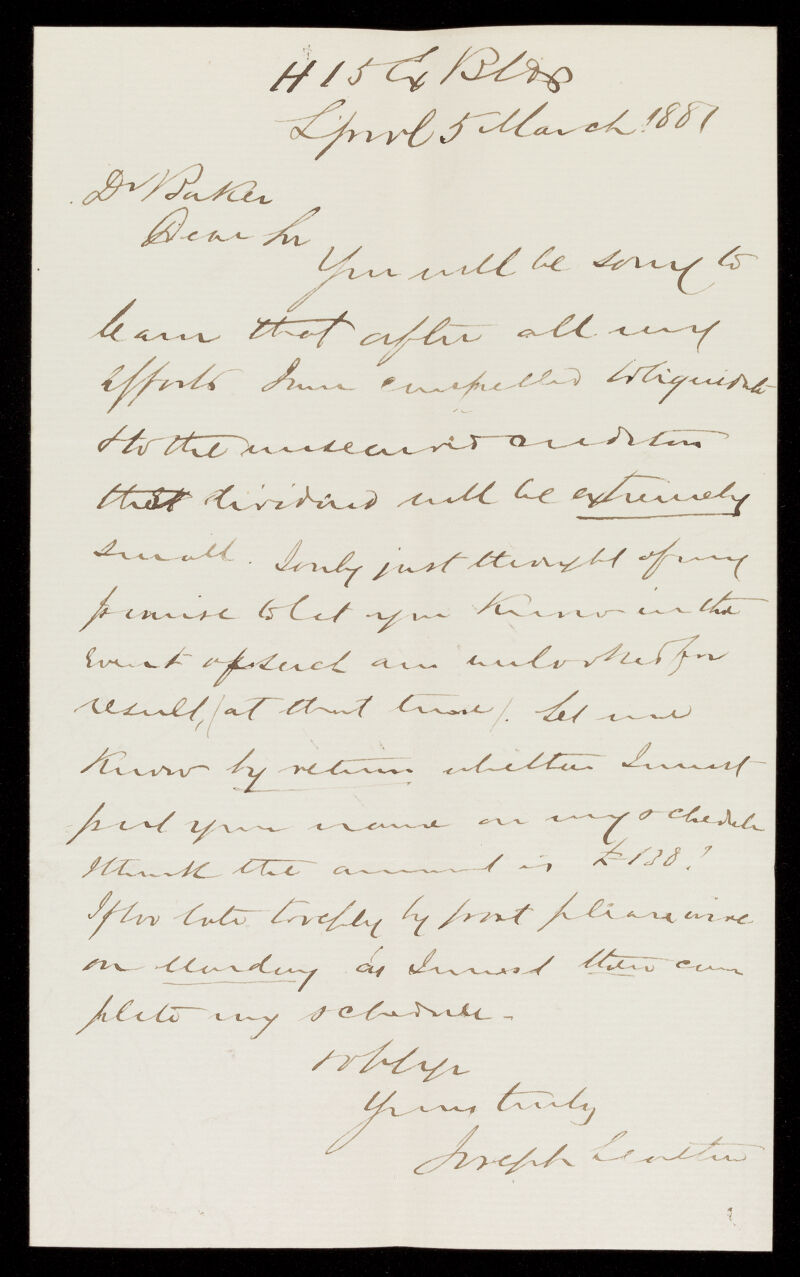 H 15 Ex Bldgs
L'pool 5 March 1881
Dr Baker
Dear Sir
You will be sorry to
learn that after all my
efforts I am compelled to liquidate
& to the unsecured creditors
the dividend will be extremely
small. I only just thought of my
promise to let you know in the
event of such an unlooked for
result, (at that time). Let me
know by return whether I must
put your name on my schedule
I think the amount is £138?
If too late to reply by post please wire
on Monday as I must then com
plete my schedule -
Yours truly
Joseph